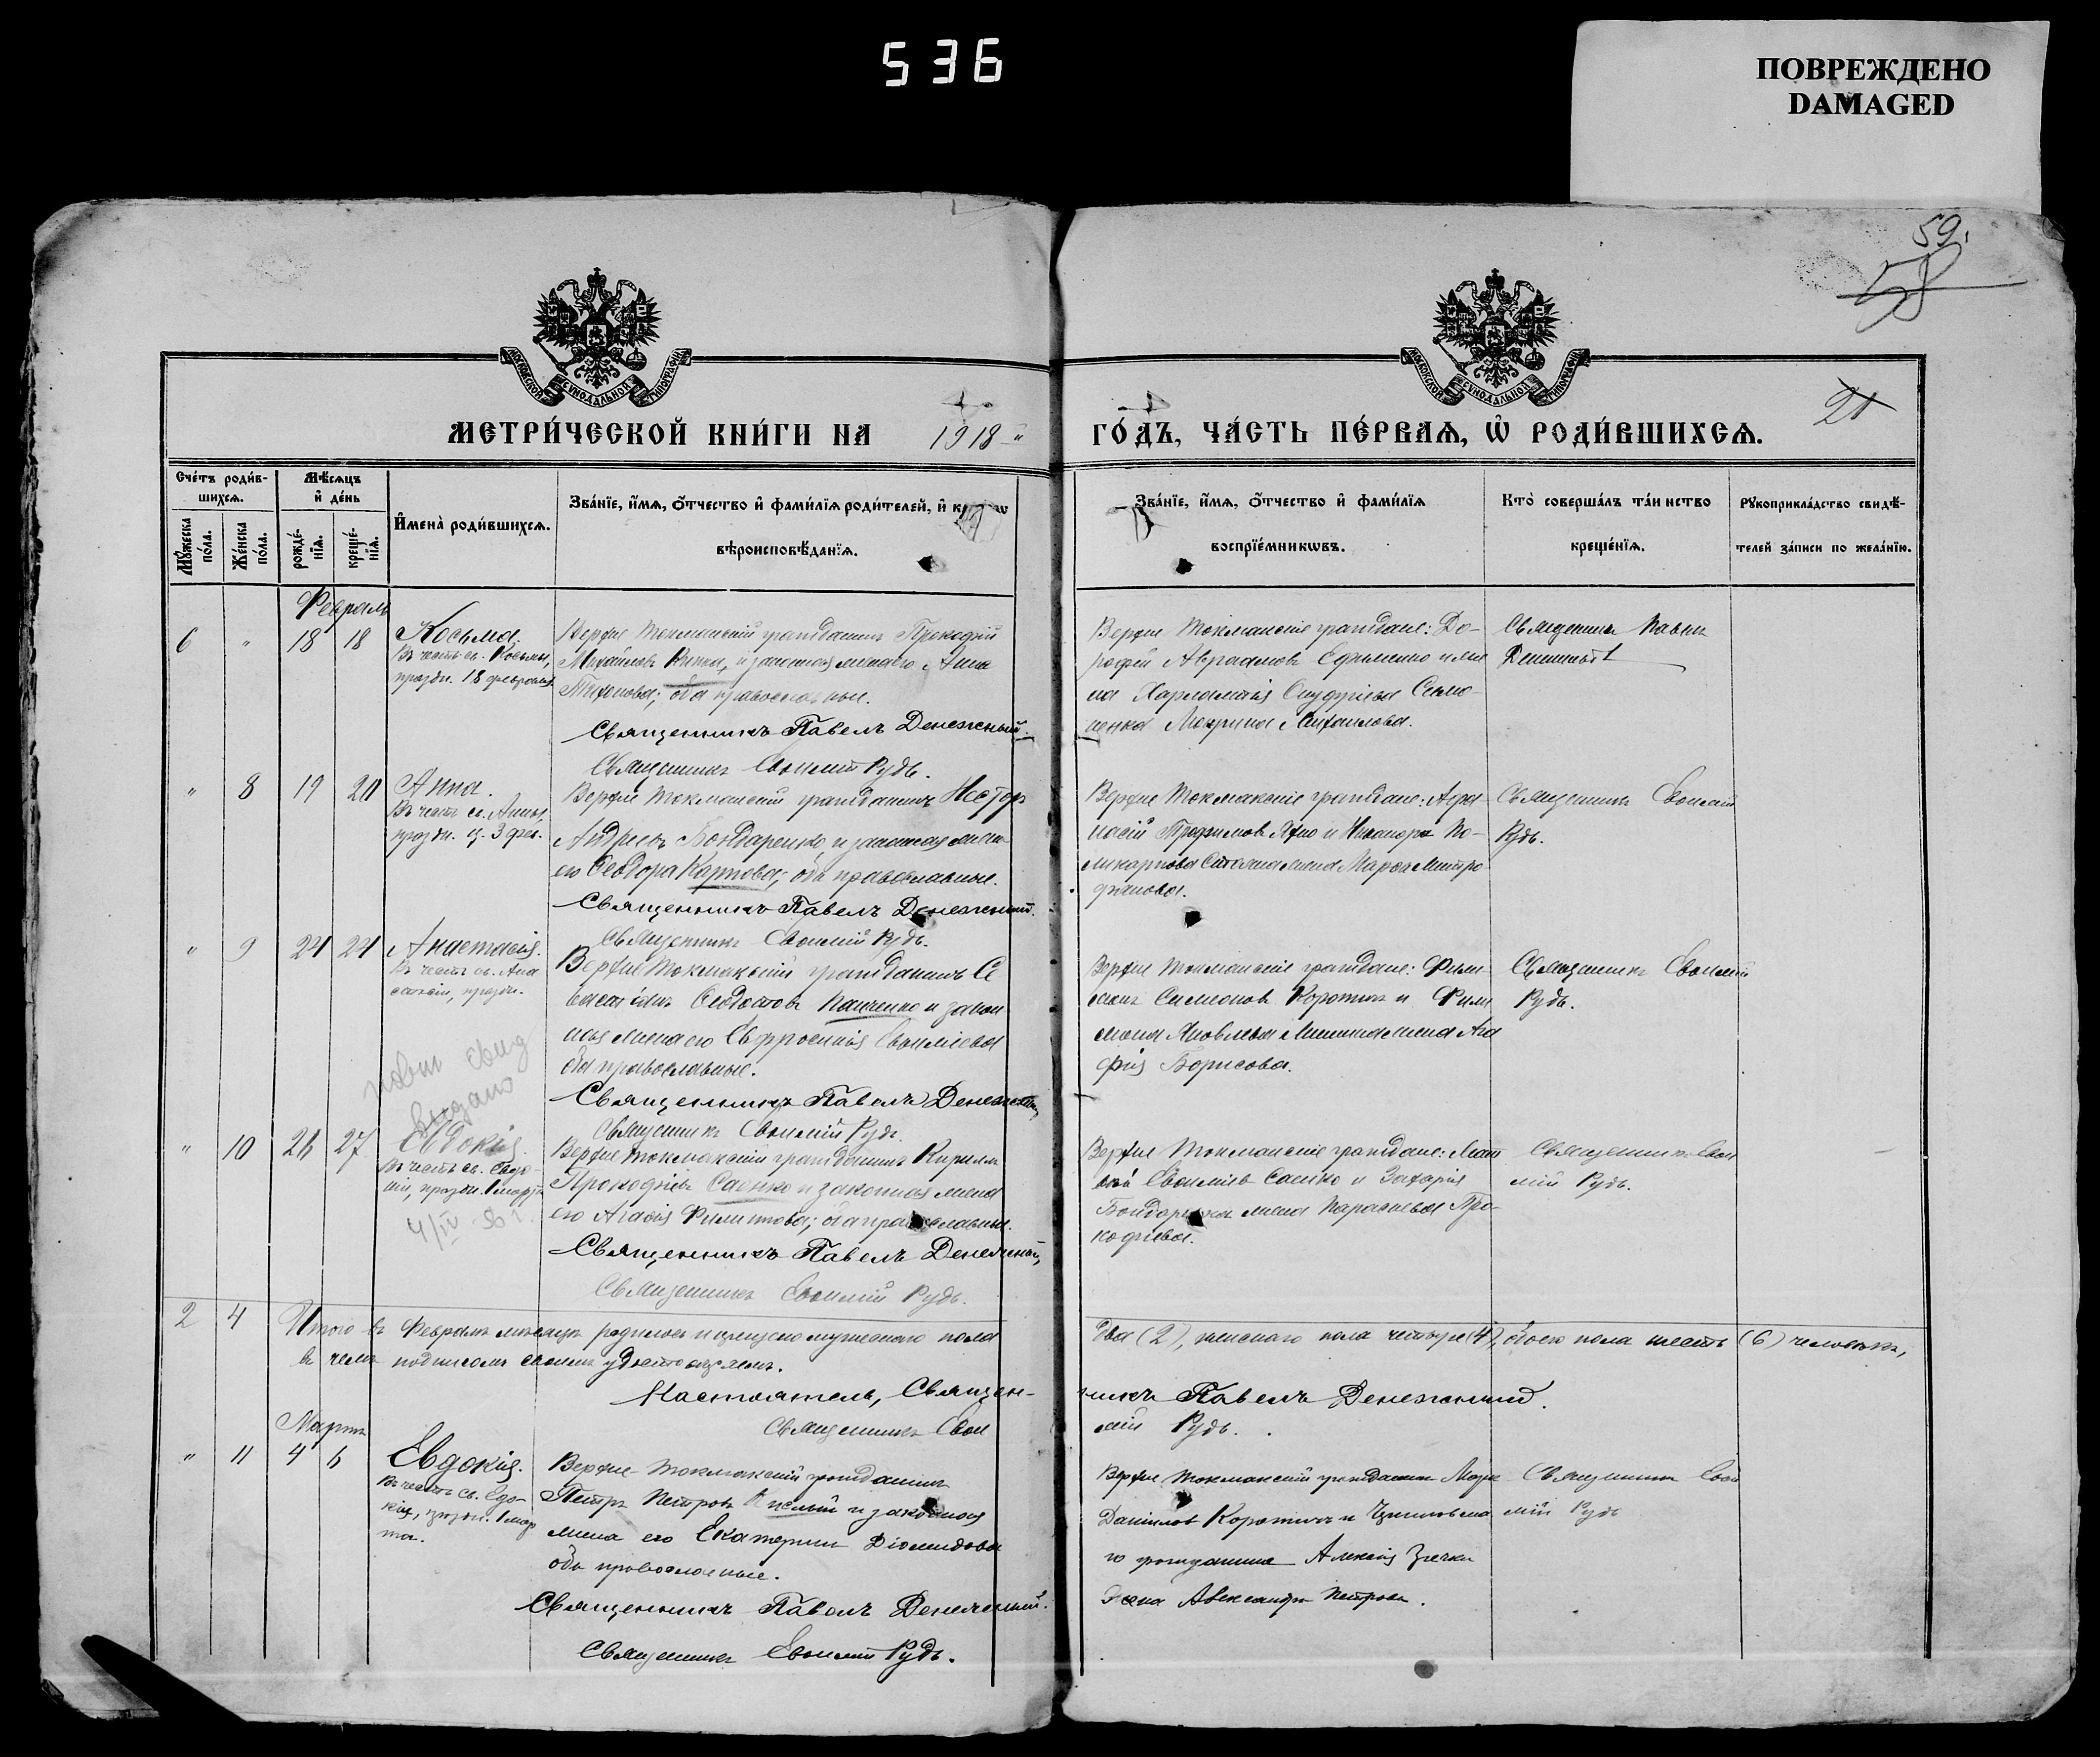 536
ПОВРЕЖДЕНО
DAMAGED
59.
МЕТРИ́ЧЕСКОЙ КНИ́ГИ НА 1918 ГО́ДЪ, ЧА́СТЬ ПЕ́РВАЯ, Ѡ҆ РОДИ́ВШИХСЯ.
21
Сче́тъ роди́в-
шихся.
Мѣ́сяцъ
и҆ де́нь
Мꙋ́жеска по́ла.
Же́нска по́ла.
рожде́-
нїя.
креще́-
нїя.
И҆мена̀ роди́вшихся.
Зва́нїе, и҆́мя, ѻ҆́тчество и҆ фами́лїя роди́телей, и҆
вѣроисповѣ́данїя.
Зва́нїе, и҆́мя, ѻ҆́тчество и҆ фами́лїя
воспрїе́мникѡвъ.
Кто̀ соверша́лъ та́инство
креще́нїя.
Рꙋкоприкла́дство свидѣ́-
телей за́писи по жела́нїю.
Февраль
6 " 18 18 Косьма.
Въ честь св. Косьмы,
праздн. 18 февраля.
Верхне Токмакскій гражданинъ Прокофій
Михайловъ и законная жена его Анна
Тихонова; оба православные.
Священникъ Павелъ Денежный.
Священникъ Евѳимій Рудь.
Верхне Токмакскіе граждане: До-
рофей Авраамовъ Ефименко и же
на Харлампія
Мокрина Михаилова.
Священникъ Павелъ
Денежный
" 8 19 20 Анна.
Въ честь св. Анны,
праздн. 3 фев.
Верхне Токмакскій гражданинъ Несторъ
Андреевъ Бондаренко и законная жена
его Ѳеодора Карпова; оба православные.
Священникъ Павелъ Денежный.
Священникъ Евѳимій Рудь.
Верхне Токмакскіе граждане: Аѳа-
насій Трофимовъ и Никанора По-
ликарпова жена Марѳа Митро-
фанова.
Священникъ Евѳимій
Рудь.
" 9 21 21 Анастасія.
Въ честь св. Ана
стасіи, праздн.
Верхне Токмакскій гражданинъ Се
вастіанъ Ѳеодотовъ Панченко и закон
ная жена его Евфросинія Евѳиміева
оба православные.
Священникъ Павелъ Денежный,
Священникъ Евѳимій Рудь.
Верхне Токмакскіе граждане: Фили-
Симеоновъ Коротичъ и Фили
мона Яковлева жена Ага
фія Борисова.
Священникъ Евѳимій
Рудь.
повт свид
выдано
4/IV
" 10 26 27 Евдокія.
Въ честь св. Евдо-
кіи, праздн. 1 марта
Верхне Токмакскій гражданинъ Кириллъ
Прокофіевъ Саенко и законная жена
его Агафія Филиппова; оба православные.
Священникъ Павелъ Денежный,
Священникъ Евѳимій Рудь.
Верхне Токмакскіе граждане: Мат
вѣй Евѳиміевъ Саенко и Захарія
Бондаренка жена Параскева Про-
кофіева.
Священникъ Евѳи
мій Рудь.
2 4 Итого въ Февралѣ мѣсяцѣ родилось и крещено мужескаго пола два (2), женскаго пола четыре (4), обоего пола шесть (6) человѣкъ,
въ чемъ подписомъ своимъ удостовѣряемъ.
Настоятель, Священникъ Павелъ Денежный.
Священникъ Евѳимій Рудь.
Мартъ
" 11 4 6 Евдокія.
Въ честь св. Евдо-
кіи, праздн. 1 мар
та.
Верхне-Токмакскій гражданинъ
Петръ Петровъ и законная
жена его Екатерина Діомидова
оба православные.
Священникъ Павелъ Денежный.
Священникъ Евѳимій Рудь.
Верхне Токмакскій гражданинъ Маркъ
Даніиловъ Коротичъ и
го гражданина Алексія
жена Александра Петрова.
Священникъ Евѳи
мій Рудь